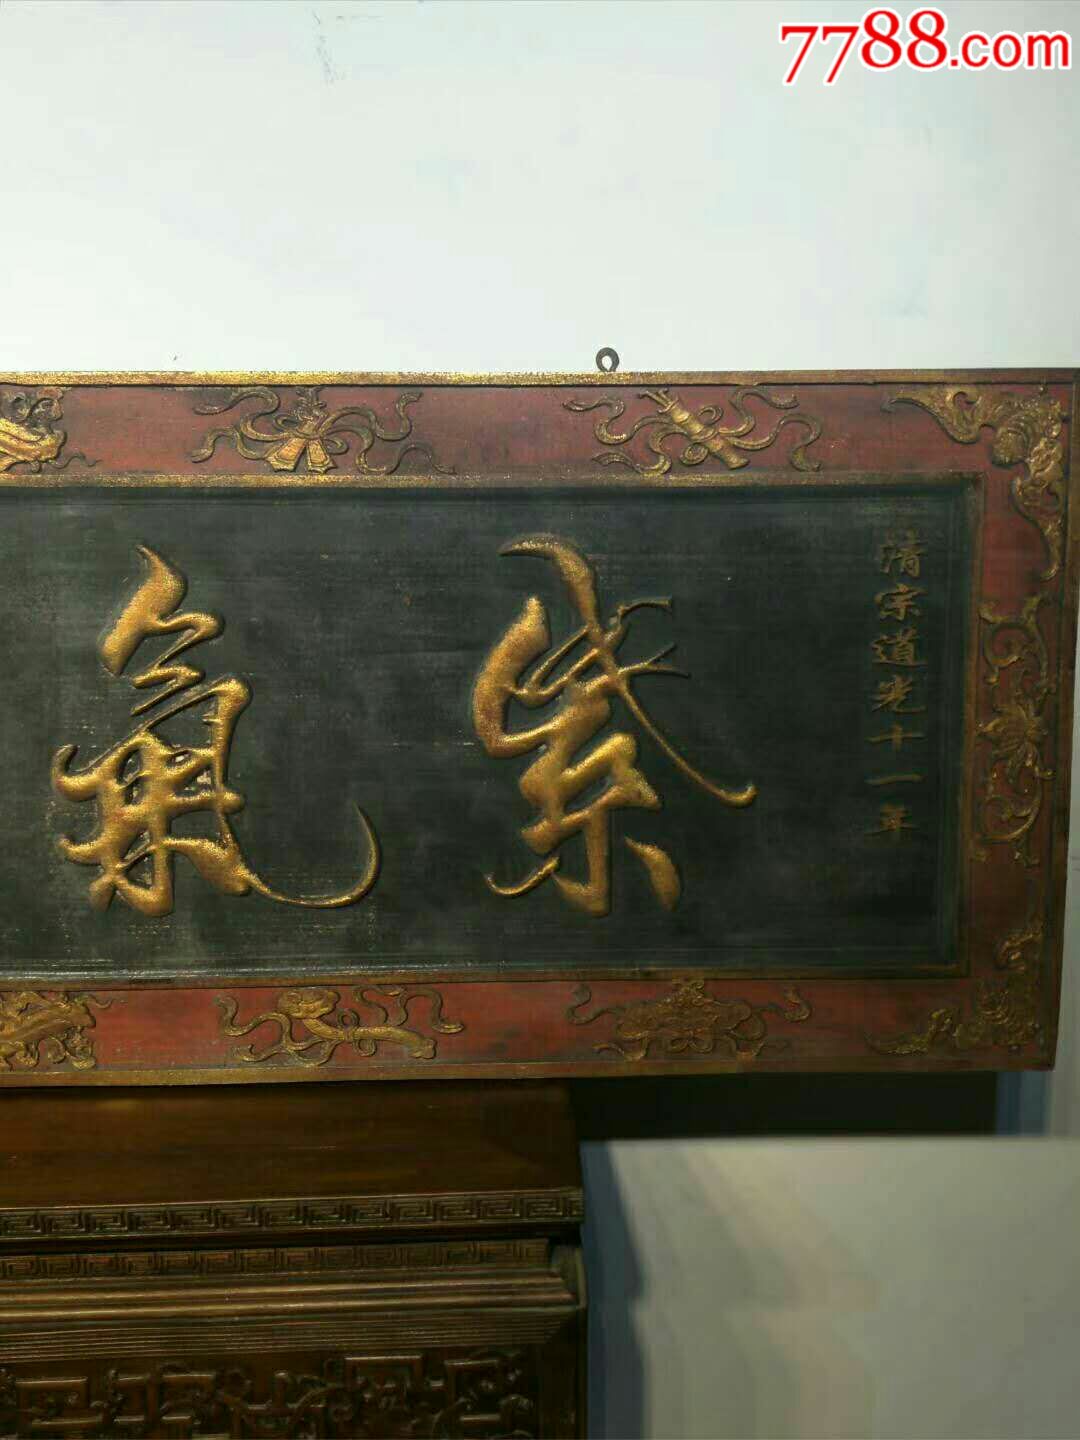 7788.com
清宗道光十一年
紫氣